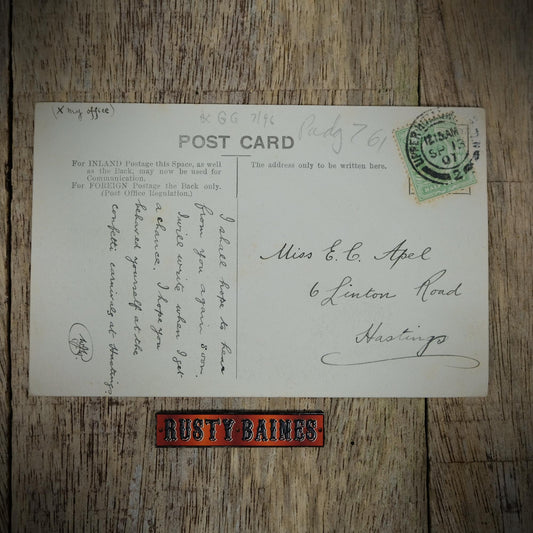 (X my office)
& GG 7/96
Padg 761
POST CARD
For INLAND Postage this Space, as well
as the Back, may now be used for
Communication.
For FOREIGN Postage the Back only.
(Post Office Regulation.)
The address only to be written here.
12.15AM
SP 13
07
I shall hope to hear
from you again soon.
I will write when I get
a chance. I hope you
behaved yourself at the
confetti carnivals at Hastings
Miss E. C. Apel
6 Linton Road
Hastings
RUSTY BAINES